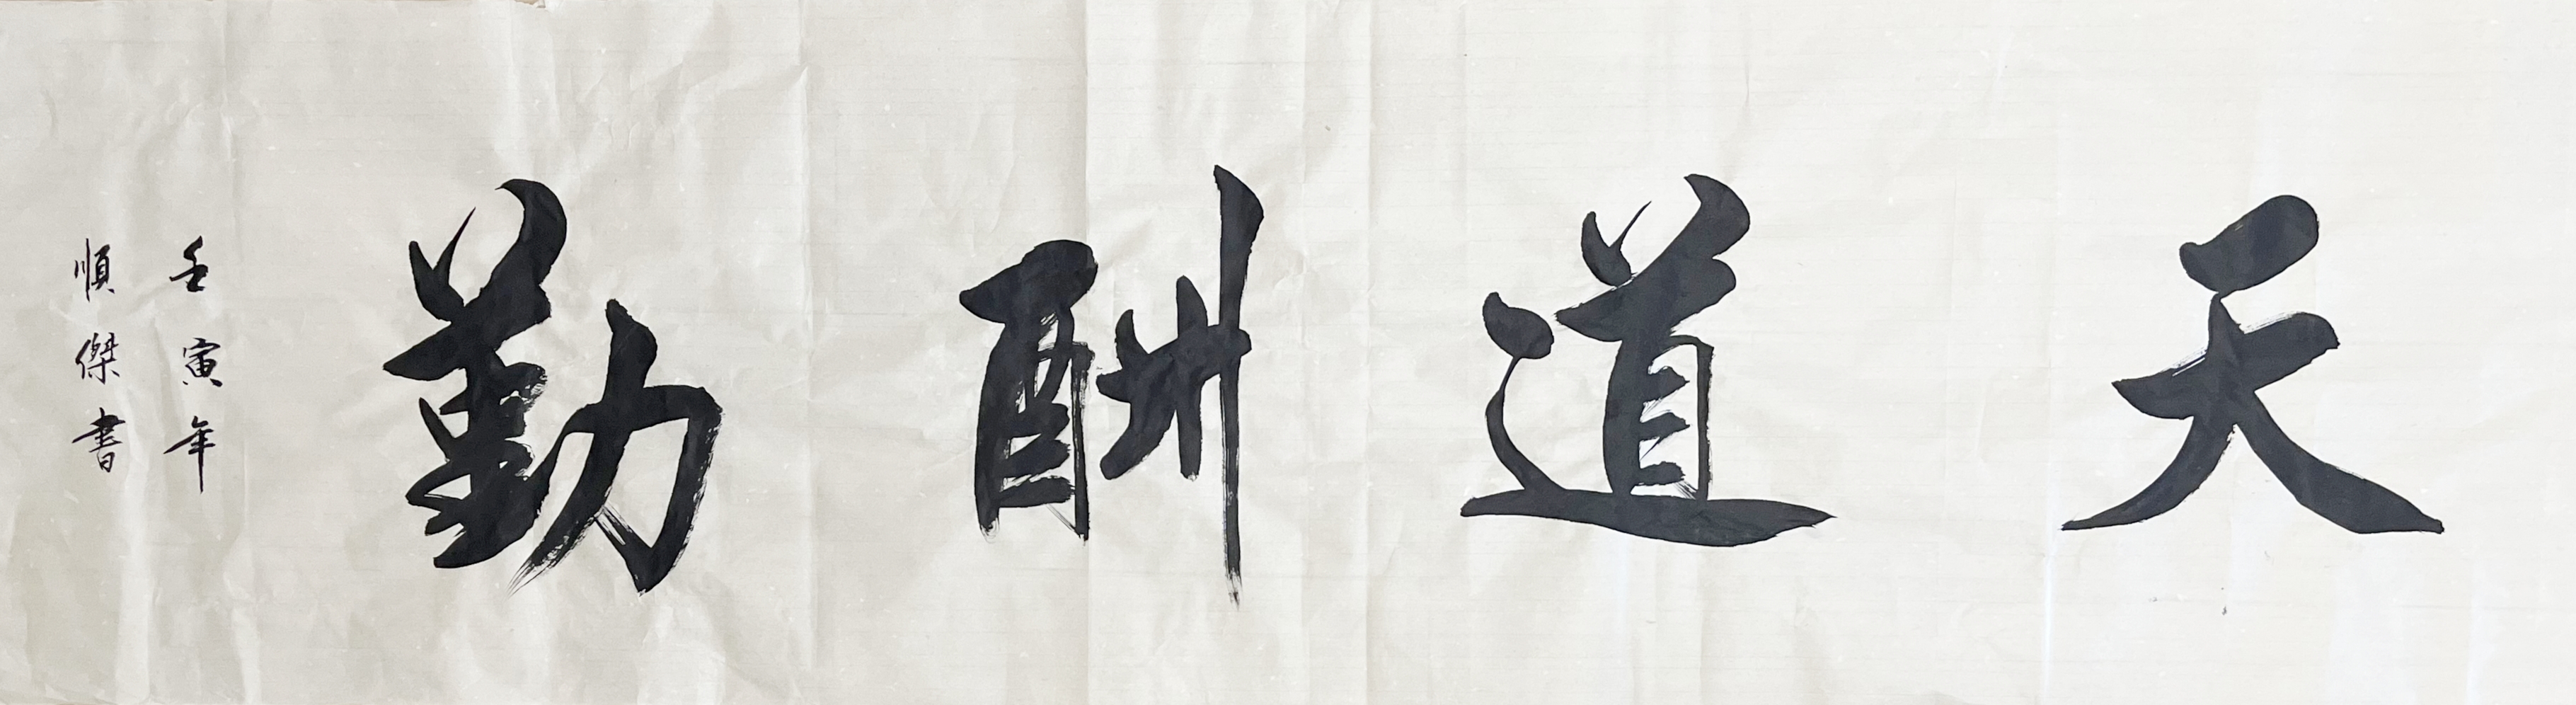 天道酬勤
壬寅年
順傑書